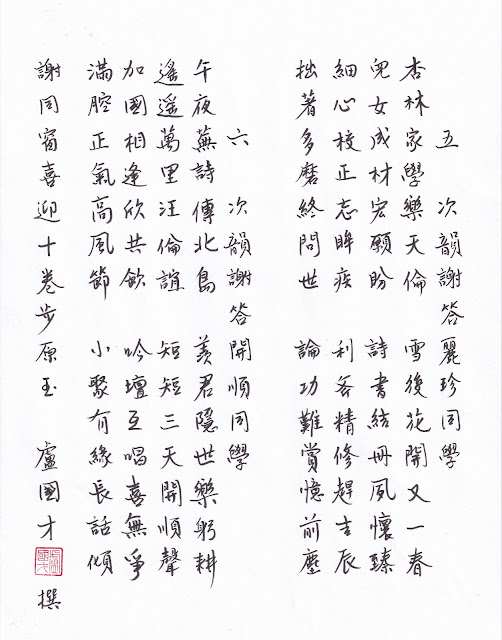 五　次韻謝答麗珍同學
杏林家學樂天倫　雪後花開又一春
兒女成材宏願盼　詩書結冊夙懷臻
細心校正志眸疾　利吝精修趕吉辰
拙著多磨終問世　論功難賞憶前塵
六　次韻謝答開順同學
午夜蕪詩傳北島　羨君隱世樂躬耕
遙遙萬里汪倫誼　短短三天開順聲
加國相逢欣共飲　吟壇互唱喜無爭
滿腔正氣高風節　小聚有緣長話傾
謝同窗喜迎十卷步原玉　盧國才　撰